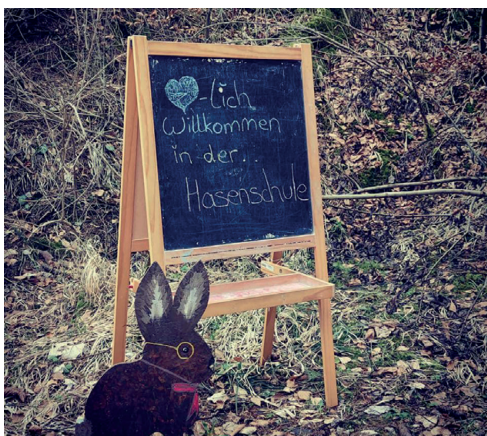 ♥-lich
willkommen
in der..
Hasenschule